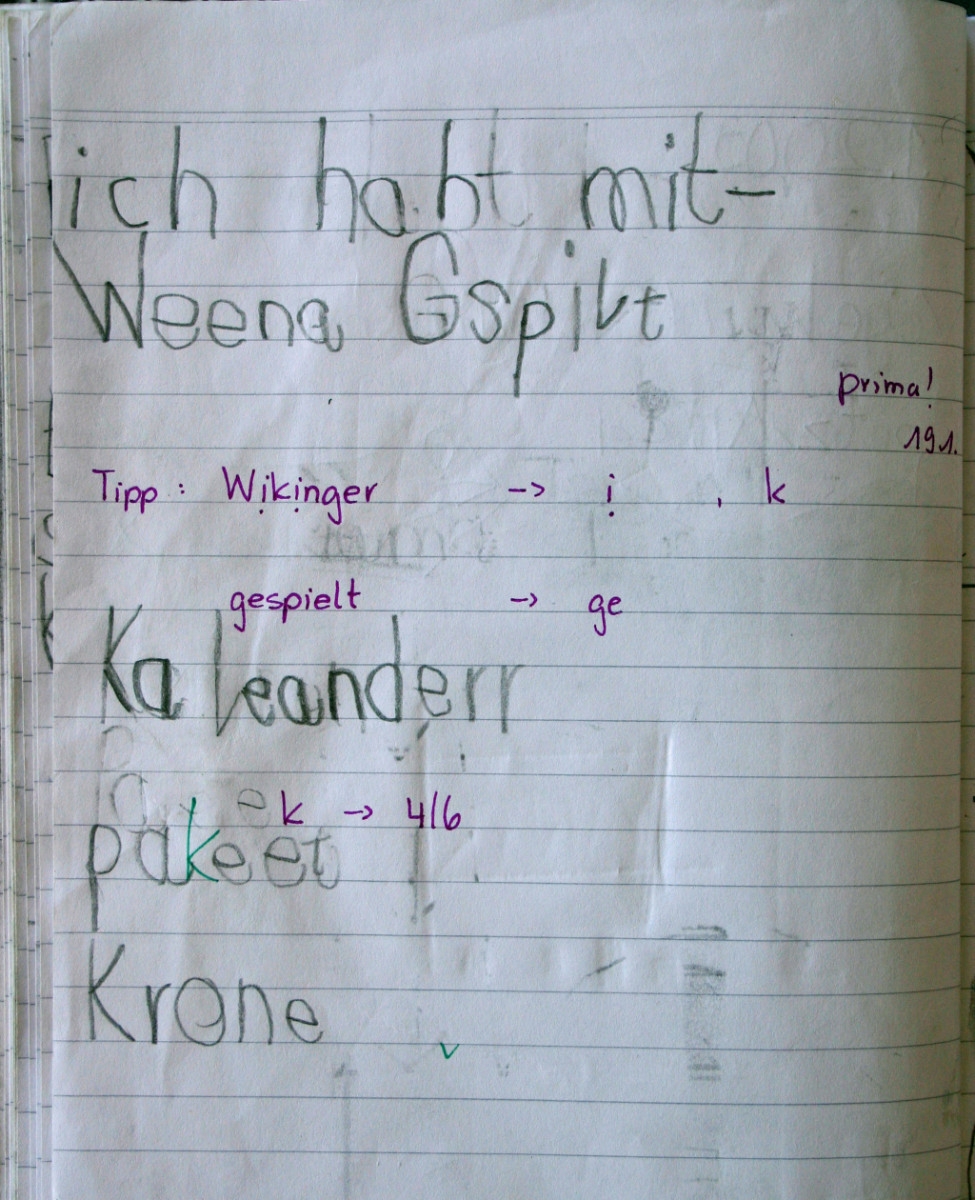 ich habt mit-
Weena Gspilt
prima!
19.1.
Tipp: Wikinger -> i , k
gespielt -> ge
Kaleanderr
k -> 4/6
pakeet
Krone